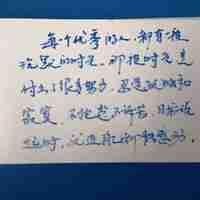 每个优秀的人，都有一段
沉默的时光。那段时光是
付出了很多努力，忍受孤独和
寂寞，不抱怨不诉苦，日后说
起时，连自己都能感动